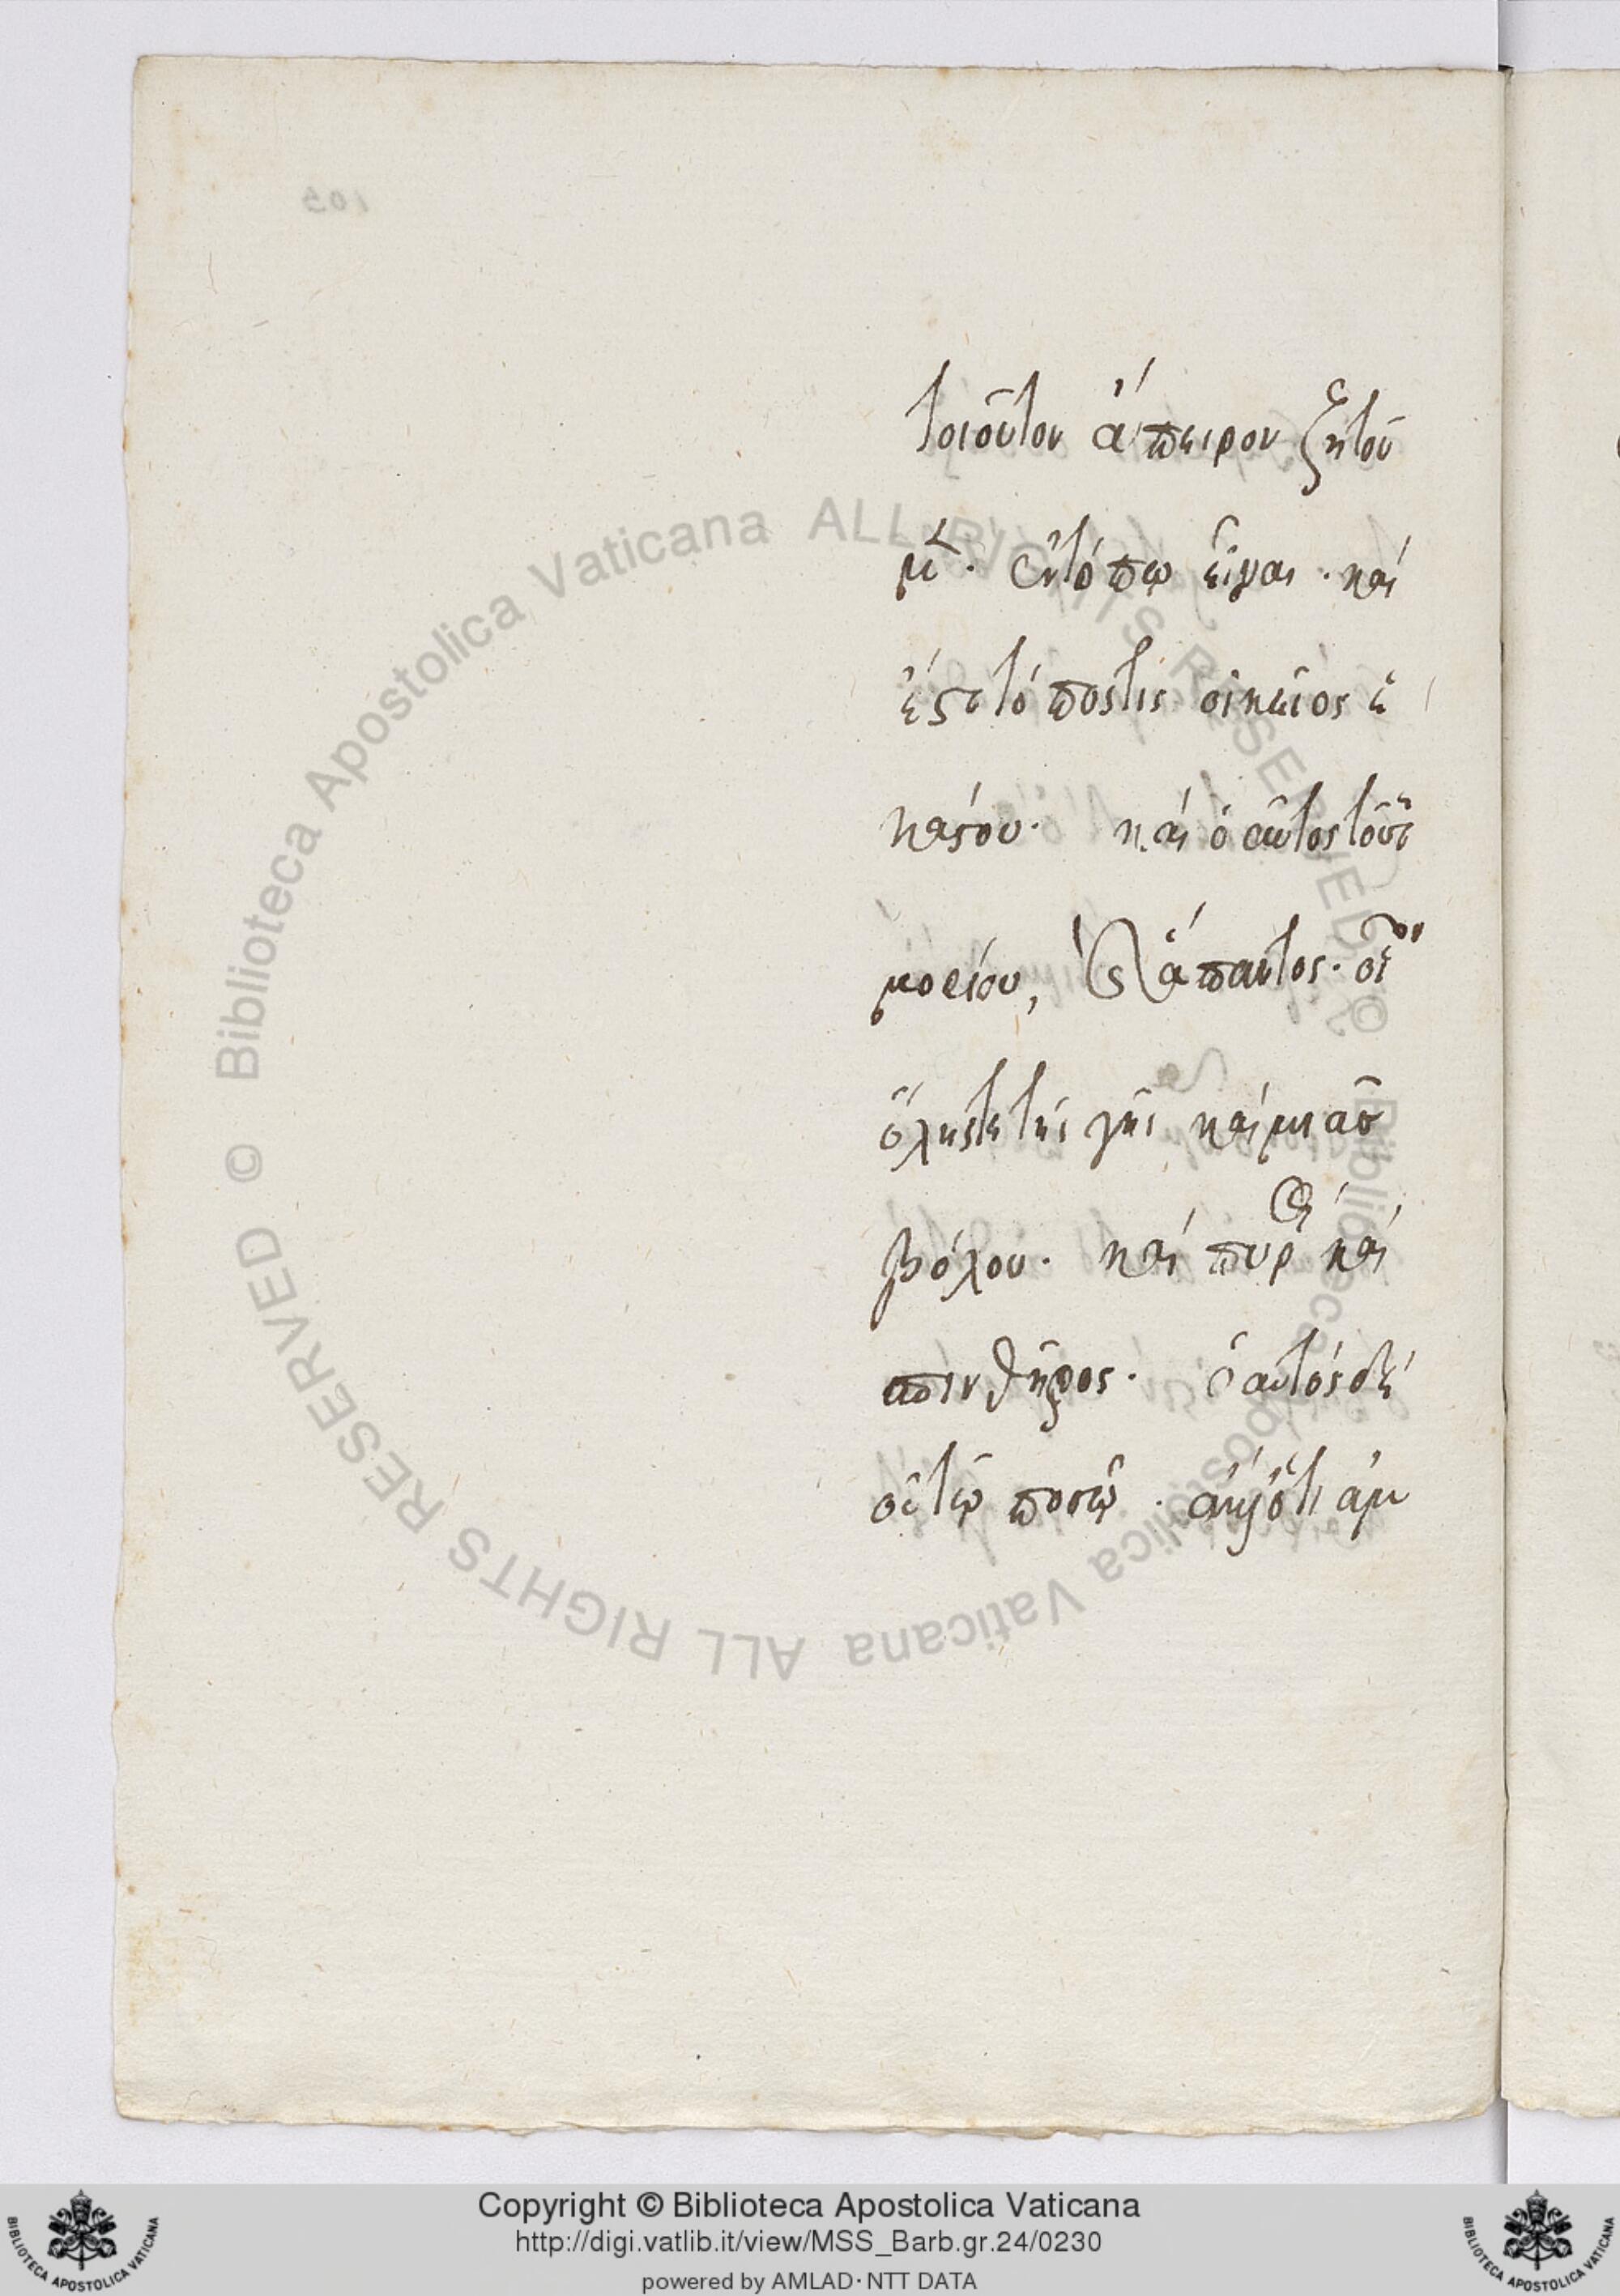 τοιοῦτον ἄπειρον ζητοῦ
μ̅. ἐν τόπω εἶναι. καὶ
ἔστι τόπος τις οἰκεῖος ἑ
κάστου. καὶ ὁ αὐτὸς τοῦτε
μορίου, καὶ ἅπαντος. οἷον
ὅλης τε τῆς γῆς καὶ μιᾶς
βόλου. καὶ πυρὸς καὶ
σπινθῆρος. ὁ αὐτὸς δὲ
οὐ τῷ ποσῷ. ἀλλ' ὅτι ἀμ
Copyright © Biblioteca Apostolica Vaticana
http://digi.vatlib.it/view/MSS_Barb.gr.24/0230
powered by AMLAD·NTT DATA
© Biblioteca Apostolica Vaticana ALL RIGHTS RESERVED
© Biblioteca Apostolica Vaticana ALL RIGHTS RESERVED
BIBLIOTECA APOSTOLICA VATICANA
BIBLIOTECA APOSTOLICA VATICANA